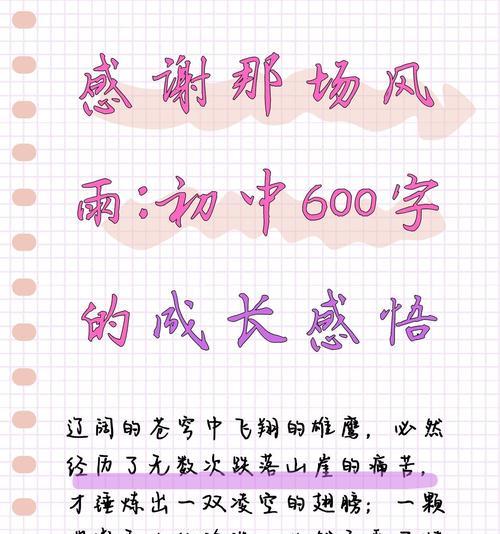 感谢那场风
雨:初中600字
的成长感悟
辽阔的苍穹中飞翔的雄鹰，必然
经历了无数次跌落山崖的痛苦，
才锤炼出一双凌空的翅膀；一颗